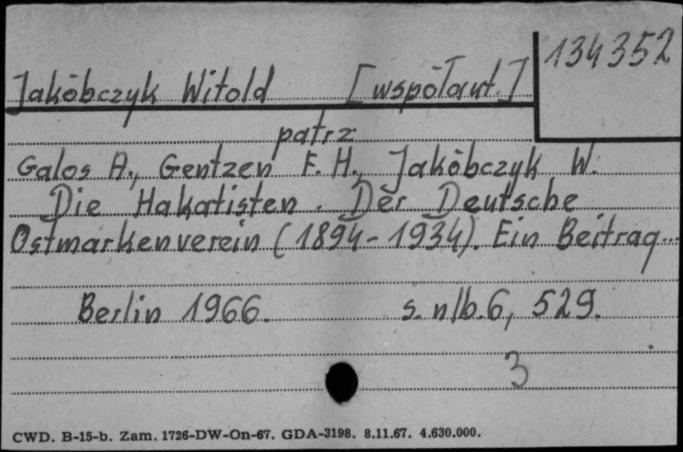 134352
Jakóbczyk Witold [współaut.]
patrz
Galos A., Gentzen F. H., Jakóbczyk W.
Die Hakatisten. Der Deutsche
Ostmarkenverein (1894-1934). Ein Beitrag...
Berlin 1966. s. nlb. 6, 529.
3
CWD. B-15-b. Zam. 1726-DW-On-67. GDA-3198. 8.11.67. 4.630.000.